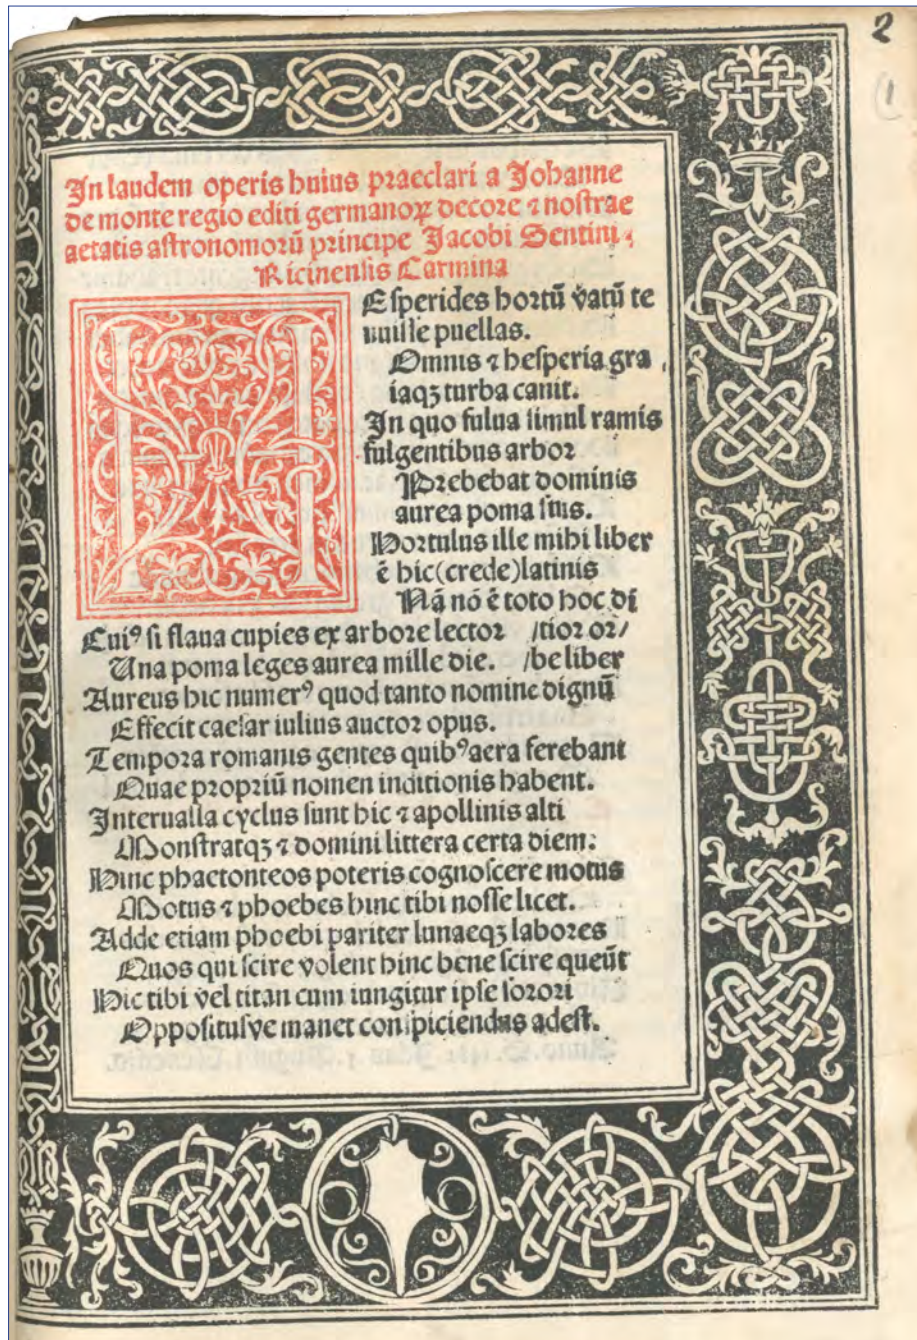 2
(1
In laudem operis huius praeclari a Johanne
de monte regio editi germanoꝝ decore ⁊ nostrae
aetatis astronomorū principe Jacobi Sentini
Ricinensis Carmina
HEsperides hortū vatū te
nuisse puellas.
Omnis ⁊ hesperia gra
iaqꝫ turba canit.
In quo fulua simul ramis
fulgentibus arbor
Prebebat dominis
aurea poma suis.
Hortulus ille mihi liber
ē hic(crede)latinis
Nā nō ē toto hoc di
Cuiꝰ si flaua cupies ex arbore lector /tior or/
Una poma leges aurea mille die. /be liber
Aureus hic numerꝰ quod tanto nomine dignū
Effecit caesar iulius auctor opus.
Tempora romanis gentes quibꝰ aera ferebant
Quae propriū nomen indittionis habent.
Interualla cyclus sunt hic ⁊ apollinis alti
Monstratqꝫ ⁊ domini littera certa diem:
Hinc phaetonteos poteris cognoscere motus
Motus ⁊ phoebes hinc tibi nosse licet.
Adde etiam phoebi pariter lunaeqꝫ labores
Quos qui scire volent hinc bene scire queūt
Hic tibi vel titan cum iungitur ipse sorori
Oppositusve manet conspiciendus adest.